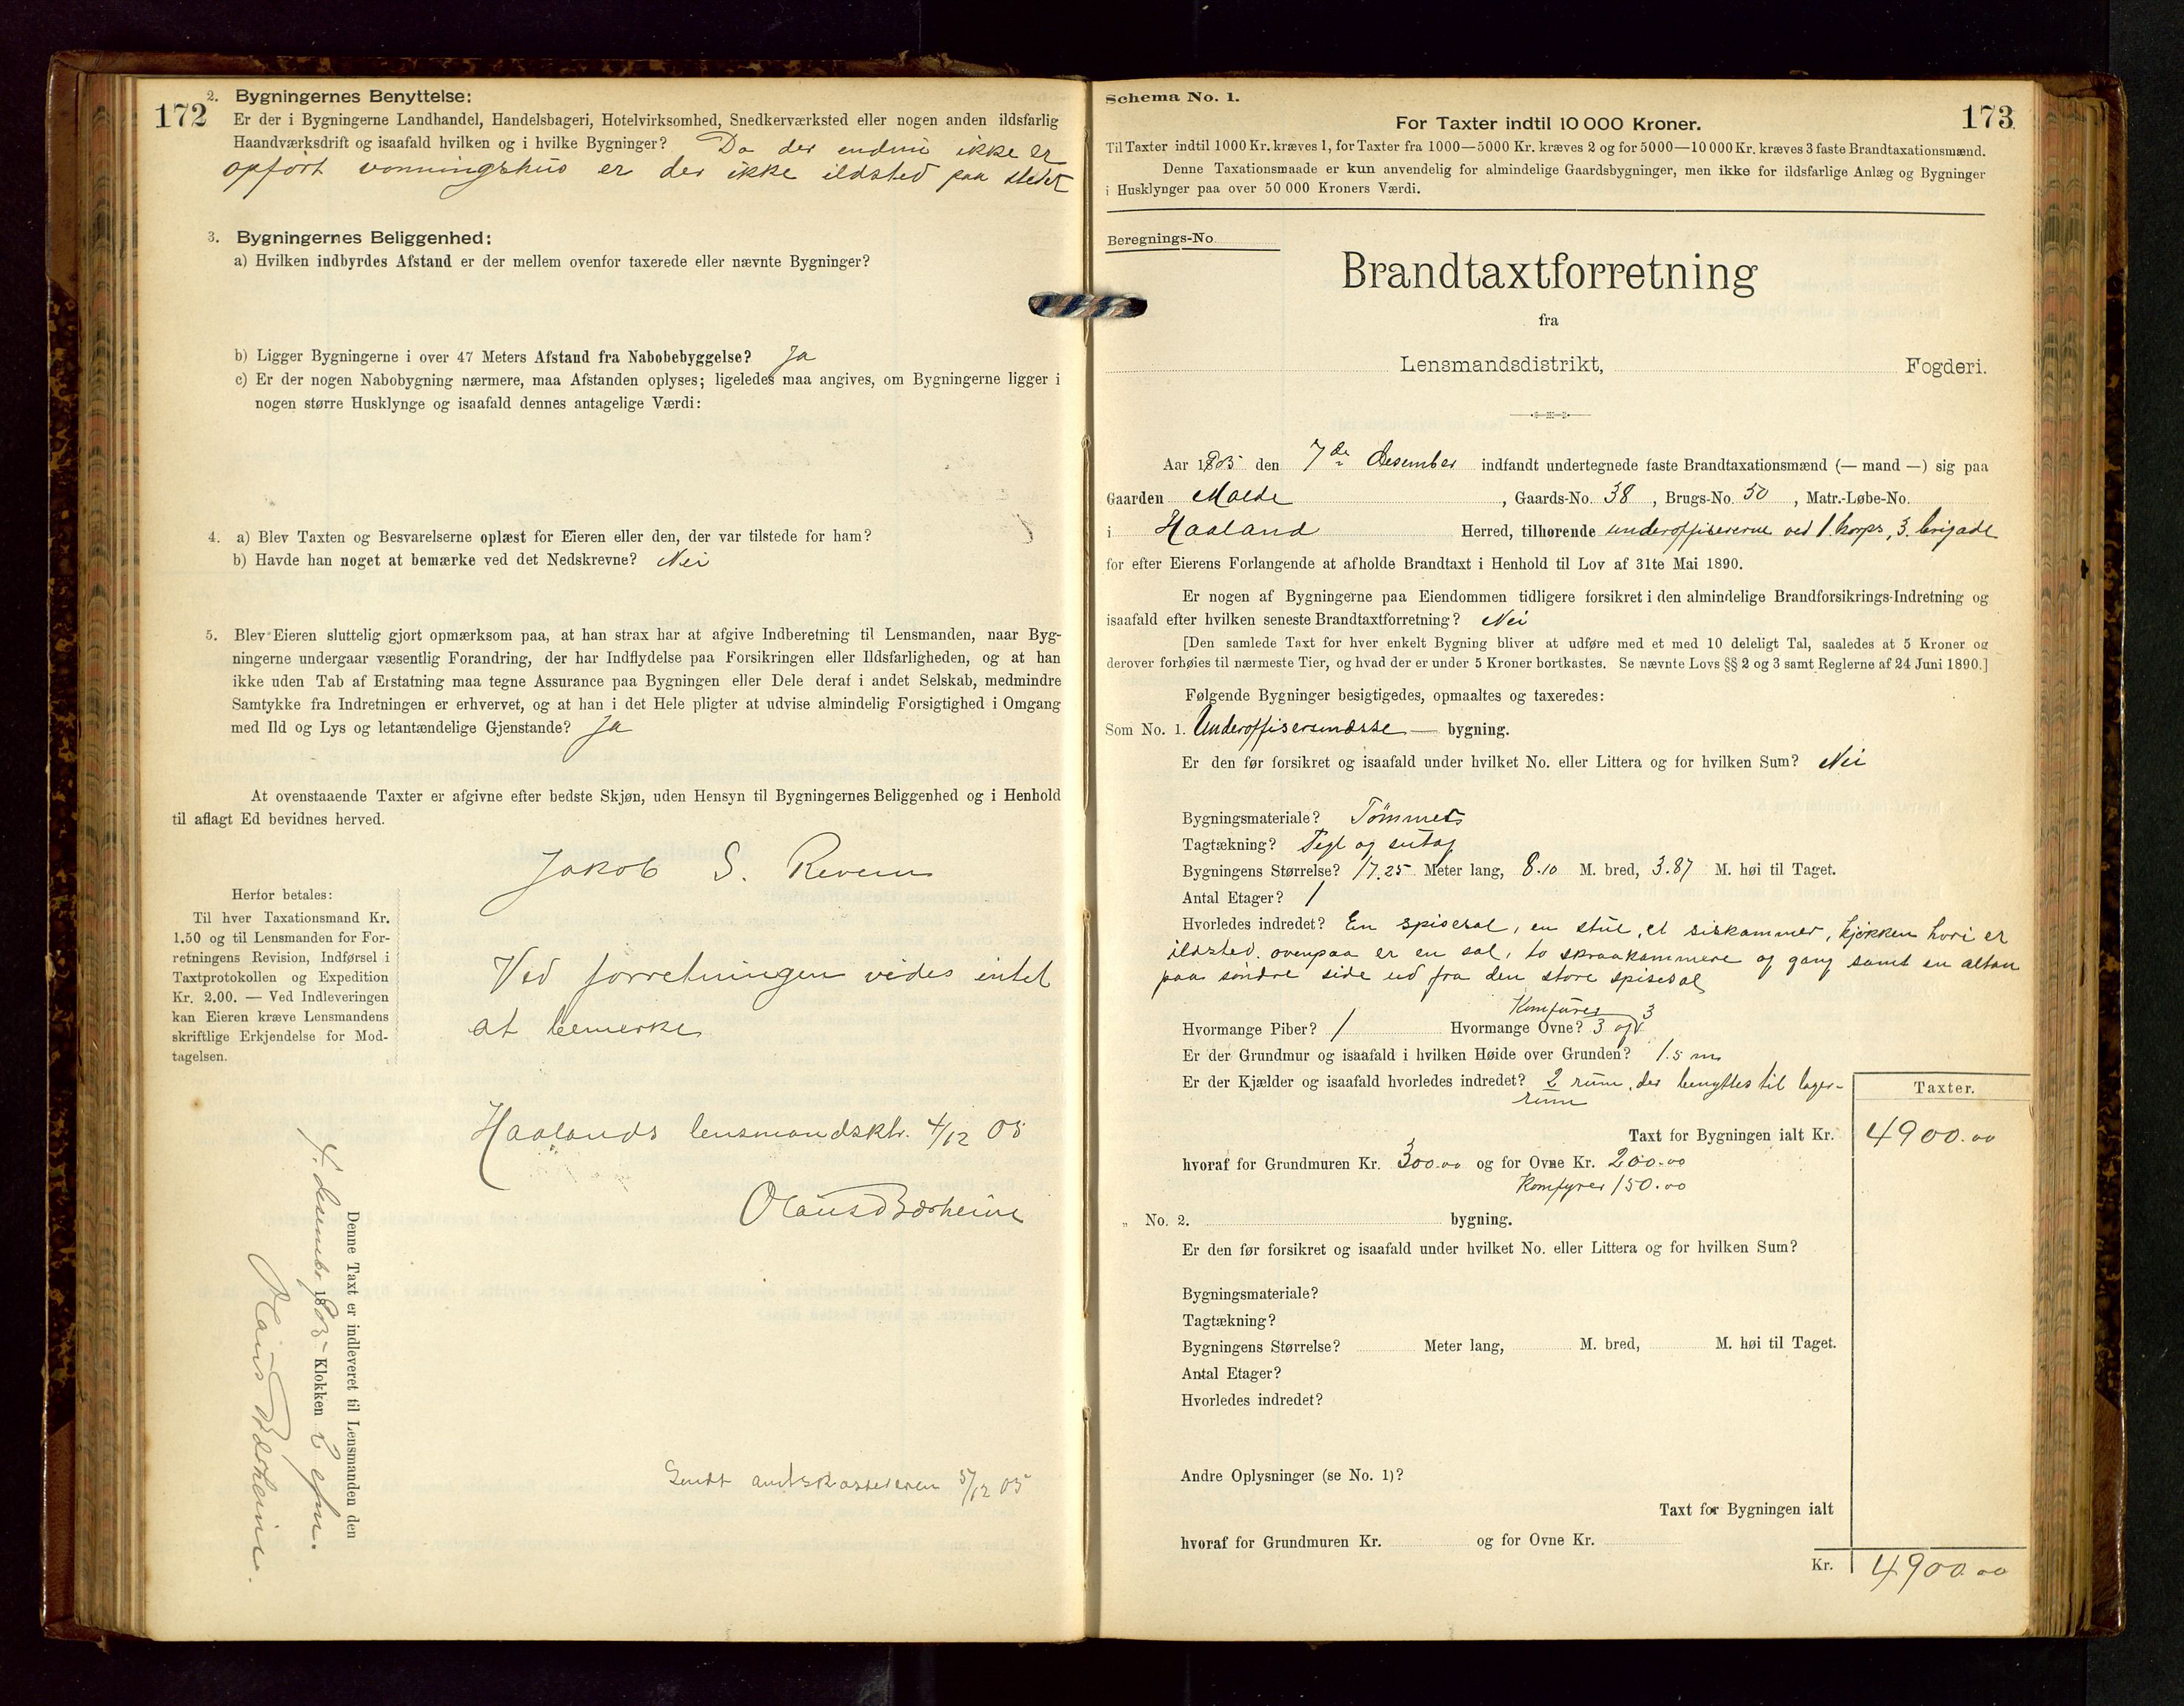 172
2. Bygningernes Benyttelse:
Er der i Bygningerne Landhandel, Handelsbageri, Hotelvirksomhed, Snedkerværksted eller nogen anden ildsfarlig
Haandværksdrift og isaafald hvilken og i hvilke Bygninger? Da der endnu ikke er
opført vonningshus er der ikke ildsted paa stedet
3. Bygningernes Beliggenhed:
a) Hvilken indbyrdes Afstand er der mellem ovenfor taxerede eller nævnte Bygninger?
b) Ligger Bygningerne i over 47 Meters Afstand fra Nabobebyggelse? Ja
c) Er der nogen Nabobygning nærmere, maa Afstanden oplyses; ligeledes maa angives, om Bygningerne ligger i
nogen større Husklynge og isaafald dennes antagelige Værdi:
4. a) Blev Taxten og Besvarelserne oplæst for Eieren eller den, der var tilstede for ham?
b) Havde han noget at bemærke ved det Nedskrevne? Nei
5. Blev Eieren sluttelig gjort opmærksom paa, at han strax har at afgive Indberetning til Lensmanden, naar Byg-
ningerne undergaar væsentlig Forandring, der har Indflydelse paa Forsikringen eller Ildsfarligheden, og at han
ikke uden Tab af Erstatning maa tegne Assurance paa Bygningen eller Dele deraf i andet Selskab, medmindre
Samtykke fra Indretningen er erhvervet, og at han i det Hele pligter at udvise almindelig Forsigtighed i Omgang
med Ild og Lys og letantændelige Gjenstande? Ja
At ovenstaaende Taxter er afgivne efter bedste Skjøn, uden Hensyn til Bygningernes Beliggenhed og i Henhold
til aflagt Ed bevidnes herved.
Jakob S. Revem
Herfor betales:
Til hver Taxationsmand Kr.
1.50 og til Lensmanden for For-
retningens Revision, Indførsel i
Taxtprotokollen og Expedition
Kr. 2.00. — Ved Indleveringen
kan Eieren kræve Lensmandens
skriftlige Erkjendelse for Mod-
tagelsen.
Ved forretningen vides intet
at bemerke
Haalands lensmandsktr. 4/12 05
Olaus Børheim
Denne Taxt er indleveret til Lensmanden den
4. desember 1905 Klokken efm.
Olaus Børheim.
Sendt amtskassereren 5/12 05
Schema No. 1.
173
For Taxter indtil 10 000 Kroner.
Til Taxter indtil 1000 Kr. kræves 1, for Taxter fra 1000—5000 Kr. kræves 2 og for 5000—10 000 Kr. kræves 3 faste Brandtaxationsmænd.
Denne Taxationsmaade er kun anvendelig for almindelige Gaardsbygninger, men ikke for ildsfarlige Anlæg og Bygninger
i Husklynger paa over 50 000 Kroners Værdi.
Beregnings-No.
Brandtaxtforretning
fra
Lensmandsdistrikt, Fogderi.
Aar 1905 den 7de desember indfandt undertegnede faste Brandtaxationsmænd (— mand —) sig paa
Gaarden Malde, Gaards-No. 38, Brugs-No. 50, Matr.-Løbe-No.
i Haaland Herred, tilhørende underoffisererne ved 1. korps, 3. brigade
for efter Eierens Forlangende at afholde Brandtaxt i Henhold til Lov af 31te Mai 1890.
Er nogen af Bygningerne paa Eiendommen tidligere forsikret i den almindelige Brandforsikrings-Indretning og
isaafald efter hvilken seneste Brandtaxtforretning? Nei
[Den samlede Taxt for hver enkelt Bygning bliver at udføre med et med 10 deleligt Tal, saaledes at 5 Kroner og
derover forhøies til nærmeste Tier, og hvad der er under 5 Kroner bortkastes. Se nævnte Lovs §§ 2 og 3 samt Reglerne af 24 Juni 1890.]
Følgende Bygninger besigtigedes, opmaaltes og taxeredes:
Som No. 1. Underoffisersmæsse — bygning.
Er den før forsikret og isaafald under hvilket No. eller Littera og for hvilken Sum? Nei
Bygningsmateriale? Tømmer
Tagtækning? Tegl og sutag
Bygningens Størrelse? 17.25 Meter lang, 8.10 M. bred, 3.87 M. høi til Taget.
Antal Etager? 1
Hvorledes indredet? En spisesal, en stue, et kjøkken hvori er
ildsted. ovenpaa er en sal, to skraakammere og gang samt en altan
paa søndre side ud fra den store spisesal
Komfurer 3
Hvormange Piber? 1 Hvormange Ovne? 3 og
Er der Grundmur og isaafald i hvilken Høide over Grunden? 1.5 m
Er der Kjælder og isaafald hvorledes indredet? 2 rum, der benyttes til lager-
rum
Taxter.
Taxt for Bygningen ialt Kr. 4900.00
hvoraf for Grundmuren Kr. 300.00 og for Ovne Kr. 200.00
Komfyrer 150.00
„ No. 2. bygning.
Er den før forsikret og isaafald under hvilket No. eller Littera og for hvilken Sum?
Bygningsmateriale?
Tagtækning?
Bygningens Størrelse? Meter lang, M. bred, M. høi til Taget.
Antal Etager?
Hvorledes indredet?
Andre Oplysninger (se No. 1)?
Taxt for Bygningen ialt
hvoraf for Grundmuren Kr. og for Ovne Kr.
Kr. 4900.00